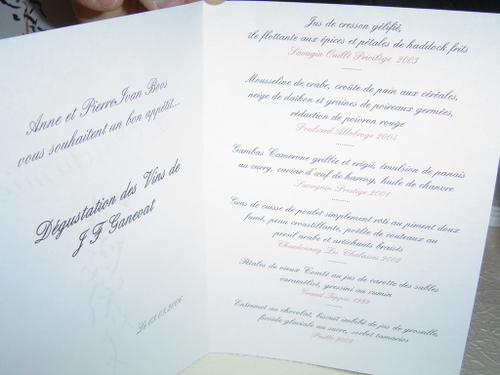 Anne et Pierre-Joan Boos
vous souhaitent un bon appétit...
Dégustation des Vins de
J F Ganevat
Le 03.03.2006
Jus de cresson gélifié,
île flottante aux épices et pétales de haddock frits
Savagin Ouillé Privilège 2003
Mousseline de crabe, croûte de pain aux céréales,
neige de daïkon et graines de poireaux germées,
réduction de poivron rouge
Poulsard Allobroge 2004
Gambas Camerone grillée et origû, émulsion de panais
au curry, caviar d'œuf de hareng, huile de chanvre
Savagnin Prestige 2001
Gras de cuisse de poulet simplement rôti au piment doux
fumé, peau croustillante, poêlée de couteaux au
persil arabe et artichauts braisés
Chardonnay Les Chalasses 2002
Pétales de vieux Comté au jus de carotte des sables
caramélisé, gressini au cumin
1989
Entremet au chocolat, biscuit imbibé de jus de groseille,
glaciale au sucre, sorbet tamarios